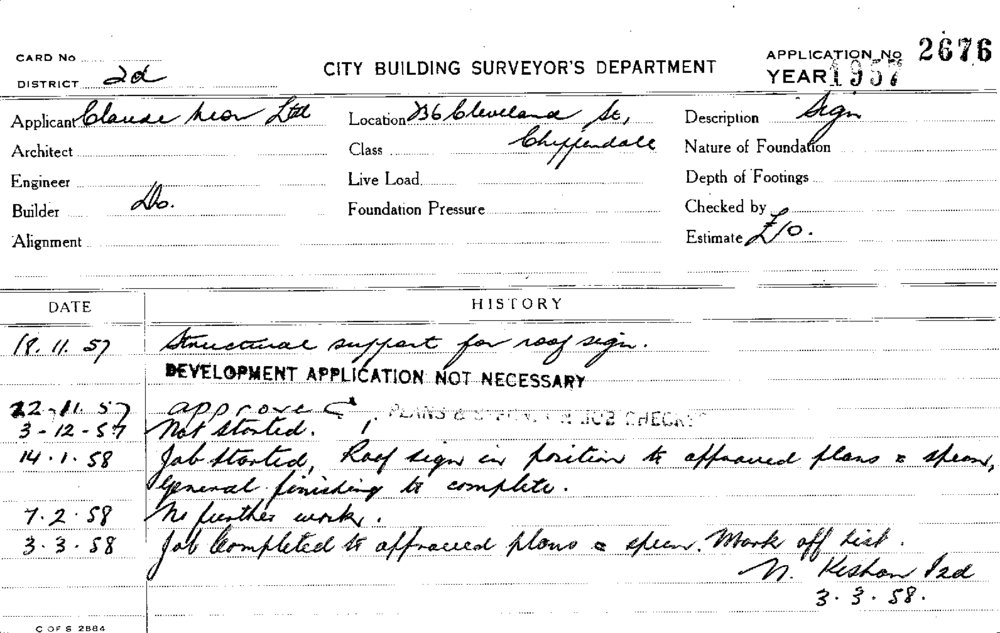 CARD No
DISTRICT 2d
CITY BUILDING SURVEYOR'S DEPARTMENT
APPLICATION No 2676
YEAR 1957
Applicant Claude Neon Ltd
Location Cleveland St,
Description Sign
Architect
Class Chippendale
Nature of Foundation
Engineer
Live Load
Depth of Footings
Builder Do.
Foundation Pressure
Checked by
Alignment
Estimate £10.
DATE HISTORY
18.11.57 Structural support for roof sign.
DEVELOPMENT APPLICATION NOT NECESSARY
22-11.57 approved PLANS & JOB CHECK
3-12-57 Not started.
14.1.58 Job started, Roof sign in position to approved plans & specn,
General finishing to complete.
7.2.58 No further work.
3.3.58 Job Completed to approved plans & specn. Mark off list.
N. 2d
3.3.58.
C OF S 2884